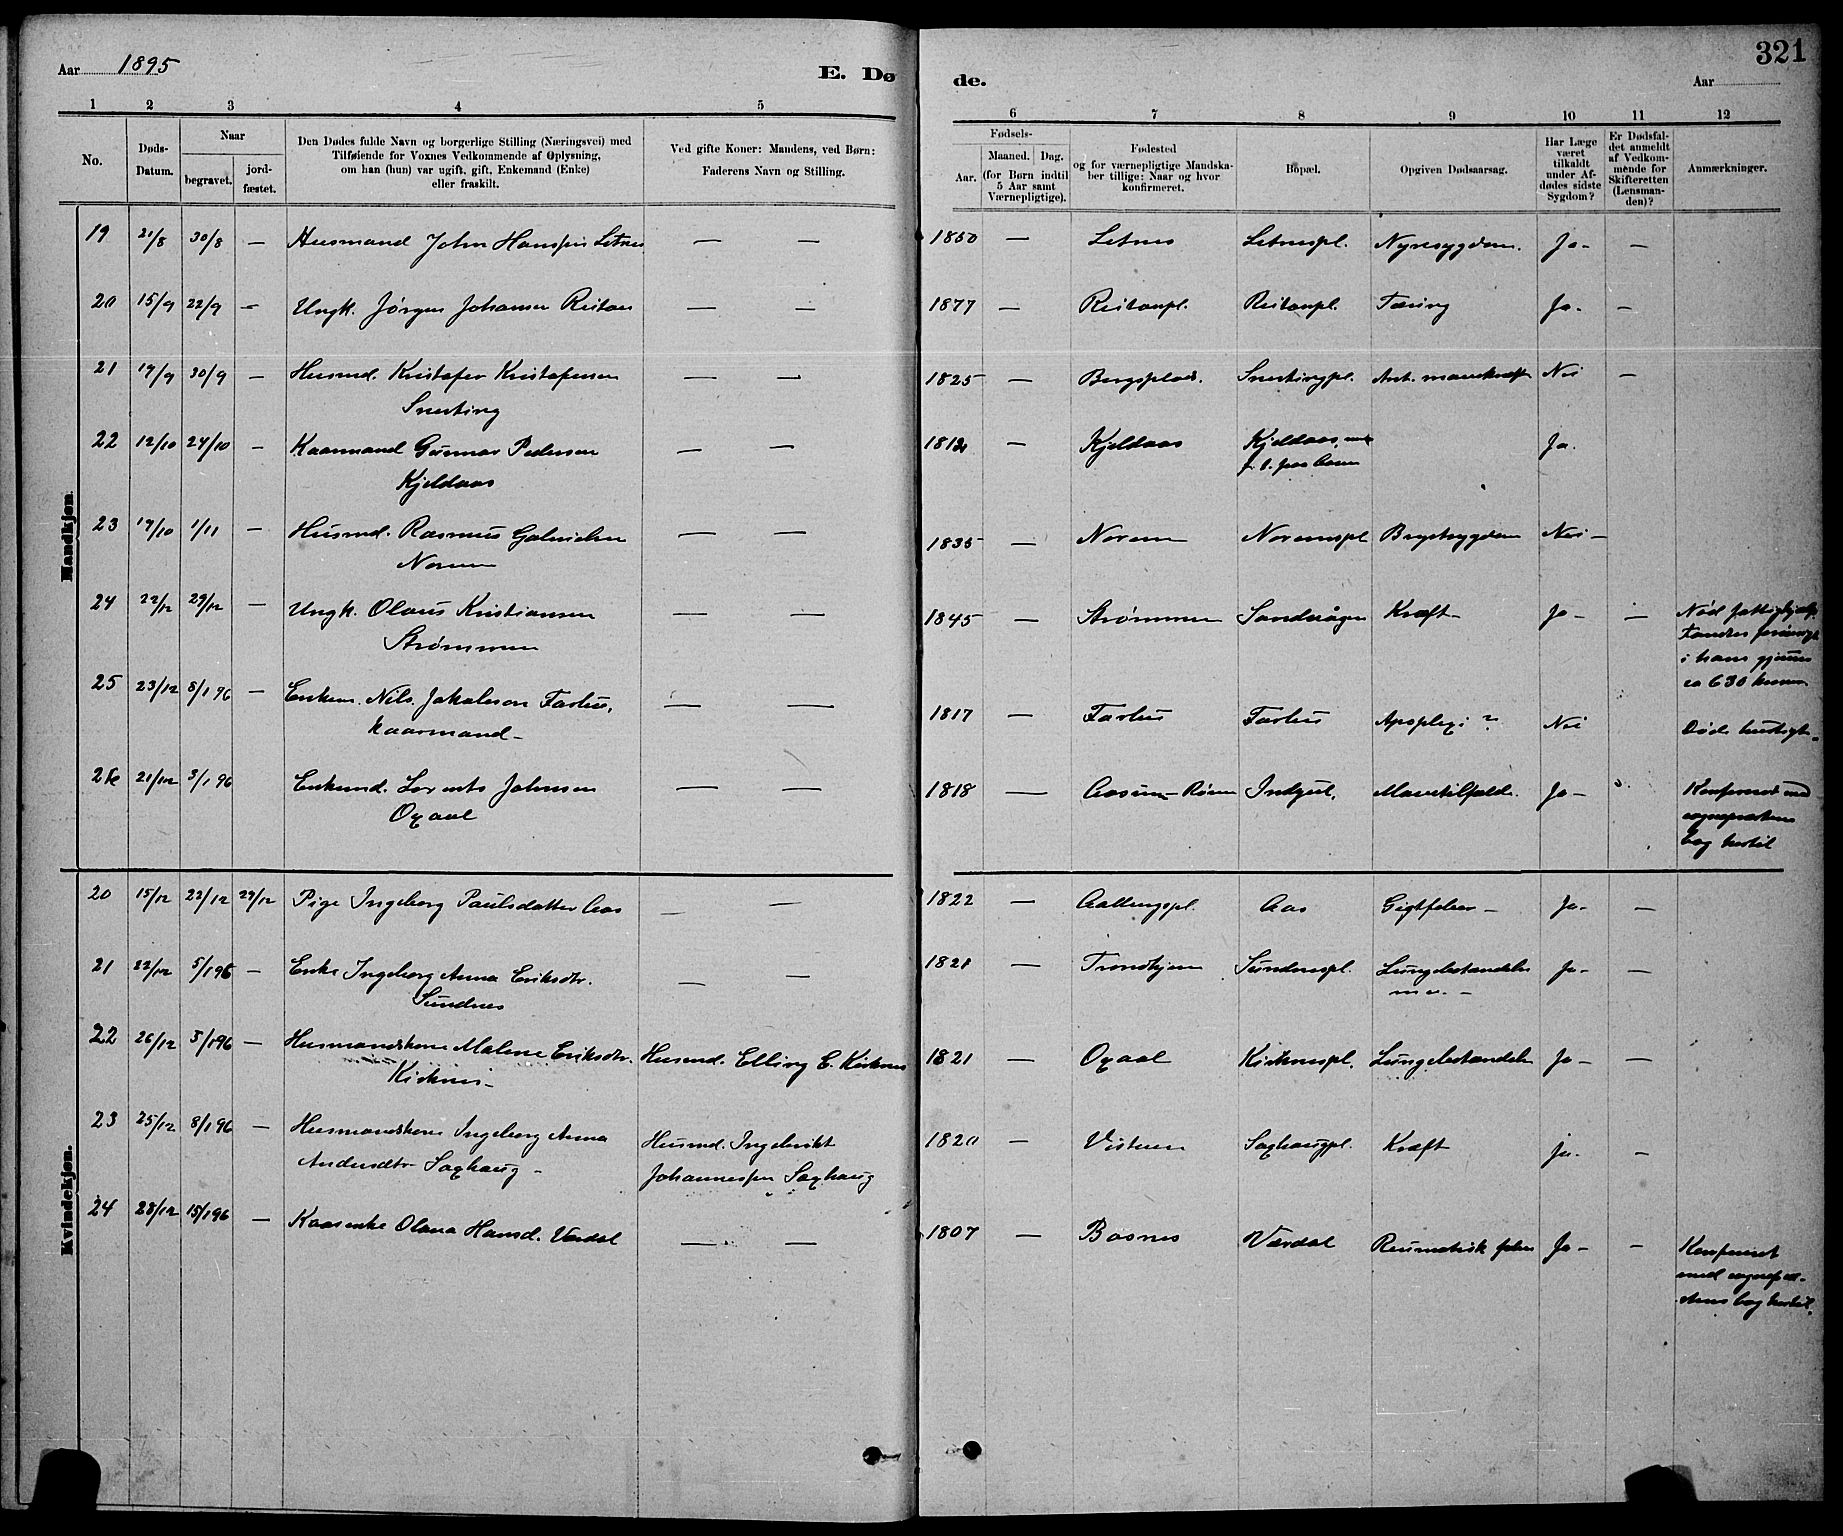 321
Aar 1895
E. Dø
de.
Aar
1 2 3 4 5 6 7 8 9 10 11 12
No.
Døds-
Datum.
Naar
begravet.
jord-
fæstet.
Den Dødes fulde Navn og borgerlige Stilling (Næringsvei) med
Tilføiende for Voxnes Vedkommende af Oplysning,
om han (hun) var ugift, gift, Enkemand (Enke)
eller fraskilt.
Ved gifte Koner: Mandens, ved Børn:
Faderens Navn og Stilling.
Fødsels-
Aar.
Maaned. Dag.
(for Børn indtil
5 Aar samt
Værnepligtige).
Fødested
og for værnepligtige Mandska-
ber tillige: Naar og hvor
konfirmeret.
Bopæl.
Opgiven Dødsaarsag.
Har Læge
været
tilkaldt
under Af-
dødes sidste
Sygdom?
Er Dødsfal-
det anmeldt
af Vedkom-
mende for
Skifteretten
(Lensman-
den)?
Anmærkninger.
Mandkjøn.
19 21/8 30/8 — Husmand John Hanssen Letnes — — 1850 — Letnes Letnespl. Nyresygdom. Ja - —
20 15/9 22/9 — Ungk. Jørgen Johansen Reitan — — 1877 — Reitanpl. Reitanpl. Tæring Ja - —
21 19/9 30/9 — Husmd. Kristofer Kristofersen — — 1825 — Bergsplads. Snertingpl. Ant. Nei —
Snerting
22 12/10 24/10 — Kaarmand Gunnar Pedersen — — — Kjeldaas Kjeldaas, Ja.
Kjeldaas
23 19/10 1/11 — Husmd. Rasmus — — 1835 — Norem Noremspl Brystsygdom Nei —
Norem
24 22/12 29/12 — Ungk. Olaus Kristiansen — — 1845 — Strømmen Sandvågen Kræft - Ja - — Nød fattighjælp.
Strømmen
i hans gjemme
ca 630 kroner
25 23/12 8/1 96 — Enkem. Nils Jakobson Farbu, — — 1817 — Farbu Farbu Apoplexi ? Nei Døde hurtigt -
Kaarmand -
26 21/12 3/1 96 Enkemd. Lorents Johnsen — — 1818 — Ja - Konfereret med
Oxaal
sogneprestens
bog hertil
Kvindekjøn.
20 15/12 22/12 29/12 Pige Ingeborg Paulsdatter Aas — — 1822 — Aas Gigtfeber - Ja - —
21 22/12 5/1 96 — Enke Ingeborg Anna Eriksdtr. — — 1821 — Trondhjem Sundnespl. Lungebetændelse Ja - —
Sundnes
m. v. -
22 26/12 5/1 96 — Husmandskone Malene Eriksdtr. Husmd. Elling E. Kirknes 1821 — Oxaal Kirknespl. Lungebetændelse Ja - —
Kirknes -
23 25/12 8/1 96 — Husmandskone Ingeborg Anna Husmd. Ingebrikt 1820 — Saxhaugpl. Kræft Ja. —
Andersdtr Saxhaug - Johannessen Saxhaug
24 28/12 15/1 96 — Kaarenke Olava Hansd. Værdal — — 1807 — Bosnes Værdal Reumatisk feber Ja - — Konfereret
med sognepræ-
stens bog hertil.